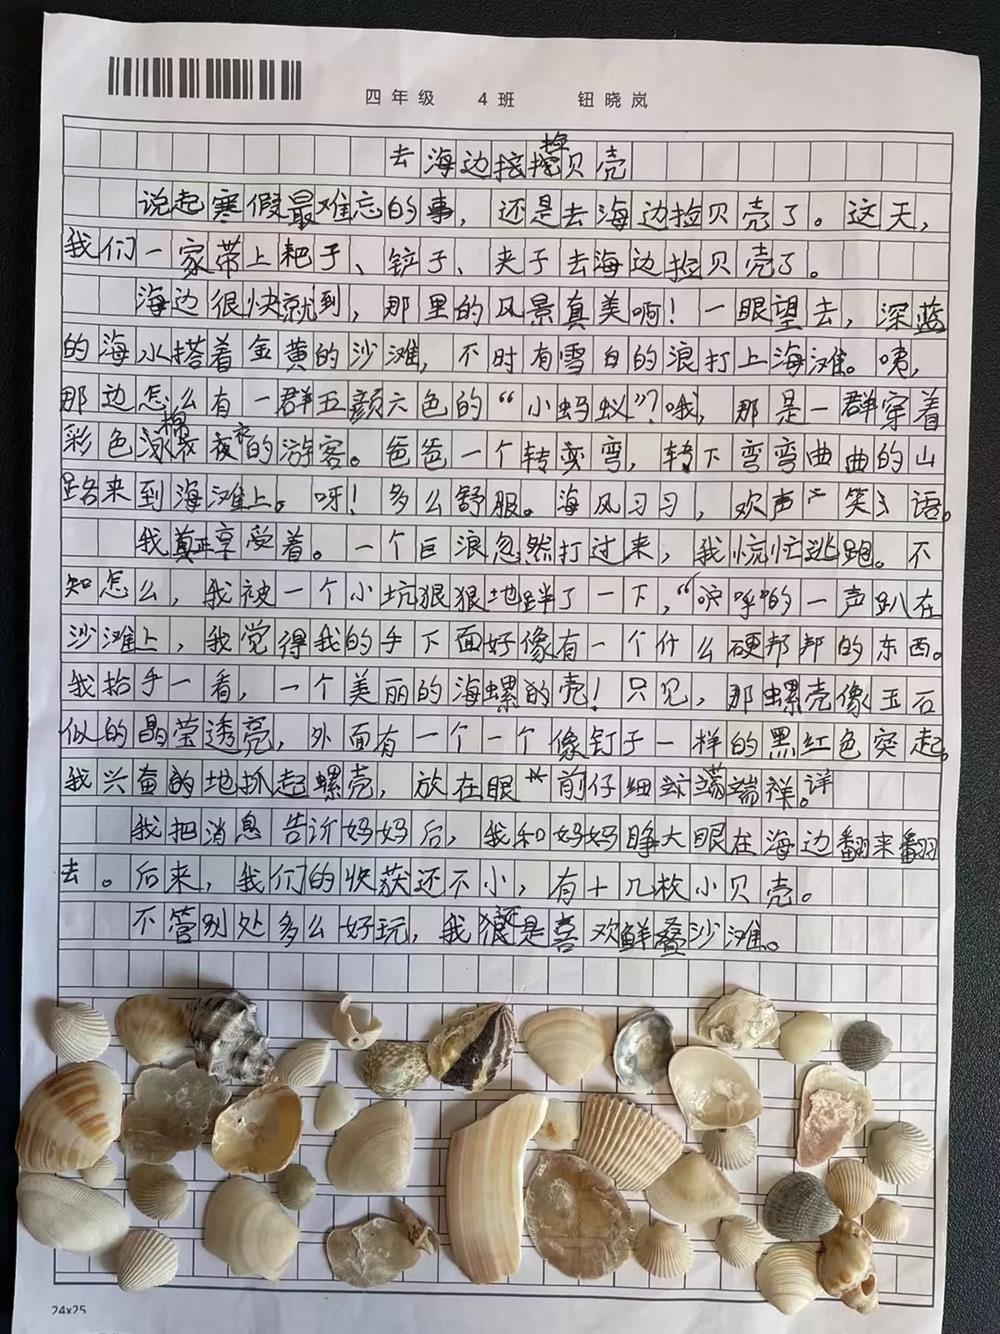 四年级 4班 钮晓岚
去海边挖贝壳
说起寒假最难忘的事，还是去海边捡贝壳了。这天，
我们一家带上耙子、铲子、夹子去海边捡贝壳了。
海边很快就到，那里的风景真美啊！一眼望去，深蓝
的海水搭着金黄的沙滩，不时有雪白的浪打上海滩。咦，
那边怎么有一群五颜六色的“小蚂蚁”？哦，那是一群穿着
彩色棉衣的游客。爸爸一个转弯，转下弯弯曲曲的山
路来到海滩上。呀！多么舒服。海风习习，欢声笑语。
我真正享受着。一个巨浪忽然打过来，我慌忙逃跑。不
知怎么，我被一个小坑狠狠地绊了一下，“哎呼”的一声趴在
沙滩上，我觉得我的手下面好像有一个什么硬邦邦的东西。
我抬手一看，一个美丽的海螺的壳！只见，那螺壳像玉石
似的晶莹透亮，外面有一个一个像钉子一样的黑红色突起。
我兴奋的地抓起螺壳，放在眼前仔细端详。
我把消息告诉妈妈后，我和妈妈睁大眼在海边翻来翻
去。后来，我们的收获还不小，有十几枚小贝壳。
不管别处多么好玩，我还是喜欢鲜叠沙滩。
24x25